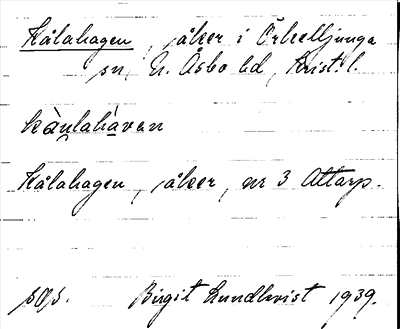 Kålahagen, åker i Örkelljunga
sn, N. Åsbo hd, Krist. l.
kàulahàven
Kålahagen, åker, nr 3 Attarp.
Birgit Lundkvist 1939.